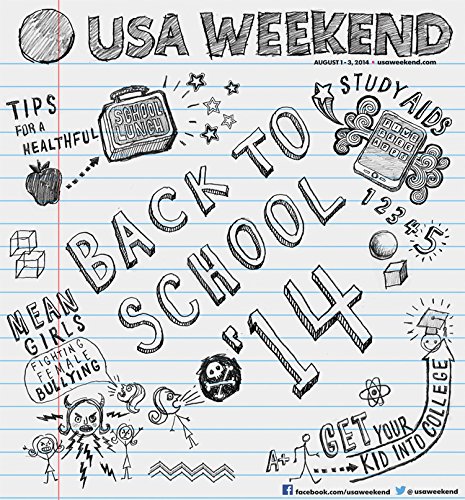 USA WEEKEND
AUGUST 1 - 3, 2014 • usaweekend.com
TIPS
FOR A
HEALTHFUL
SCHOOL
LUNCH
STUDY AIDS
1 2 3 4 5
BACK TO
SCHOOL
'14
MEAN
GIRLS
FIGHTING
FEMALE
BULLYING
A+
GET YOUR
KID INTO COLLEGE
facebook.com/usaweekend
@usaweekend